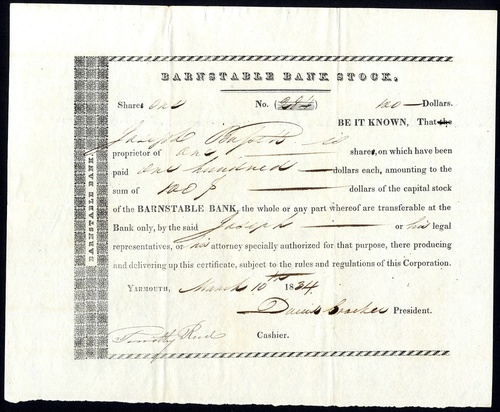 BARNSTABLE BANK STOCK.
Shares one No. 100 — Dollars.
BE IT KNOWN, That the
Joseph is
proprietor of one shares, on which have been
paid one hundred dollars each, amounting to the
sum of 100 $ dollars of the capital stock
of the BARNSTABLE BANK, the whole or any part whereof are transferable at the
Bank only, by the said Joseph or his legal
representatives, or as attorney specially authorized for that purpose, there producing
and delivering up this certificate, subject to the rules and regulations of this Corporation.
YARMOUTH, March 10th 1834
David Crocker President.
Timothy Reed Cashier.
BARNSTABLE BANK.